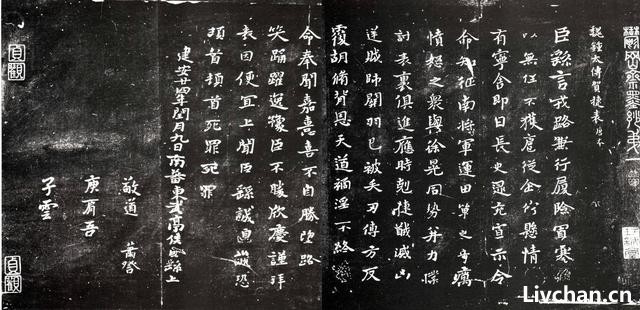 魏鍾太傅賀捷表唐本
臣繇言戎路兼行履險冒寒臣繇
以無任不獲扈從企佇懸情
有寧舍即日長史逯充宣示令
命知征南將軍運田單之奇厲
憤怒之衆與徐晃同勢并力撲
討表裏俱進應時剋捷馘滅凶
逆賊帥關羽已被矢刃傅方反
覆胡脩背恩天道禍淫不終
命奉聞嘉憙喜不自勝望路
笑踊躍逸豫臣不勝欣慶謹拜
表因便宜上聞臣繇誠惶誠恐
頓首頓首死罪死罪
建安廿四年閏月九日南蕃東武亭侯臣繇上
敬道
庾肩吾
子雲
貞觀
貞觀
Livchan.cn